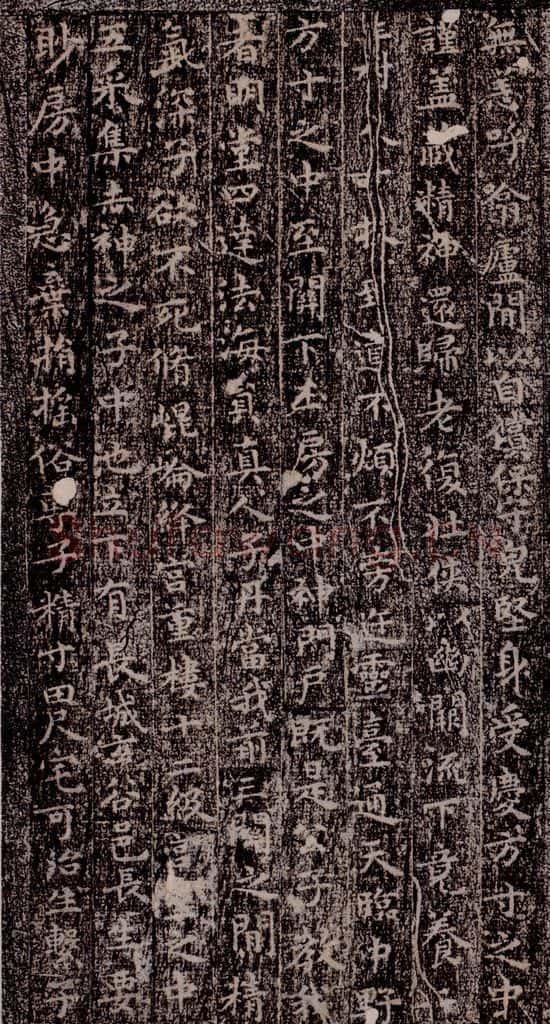 無恙呼翕廬間以自償保守完堅身受慶方寸之中
謹盖藏精神還歸老復壯俠以幽闕流下竟養
樹不煩不旁迕靈臺通天臨中野
方寸之中至關下玉房之中神門戶既是公子教我
者明堂四達法海員真人子丹當我前三關之間精
氣深子欲不死脩崐崘絳宮重樓十二級宮室之中
五采集赤神之子中池立下有長城玄谷邑長生要
眇房中急棄捐搖俗專子精寸田尺宅可治生繫子